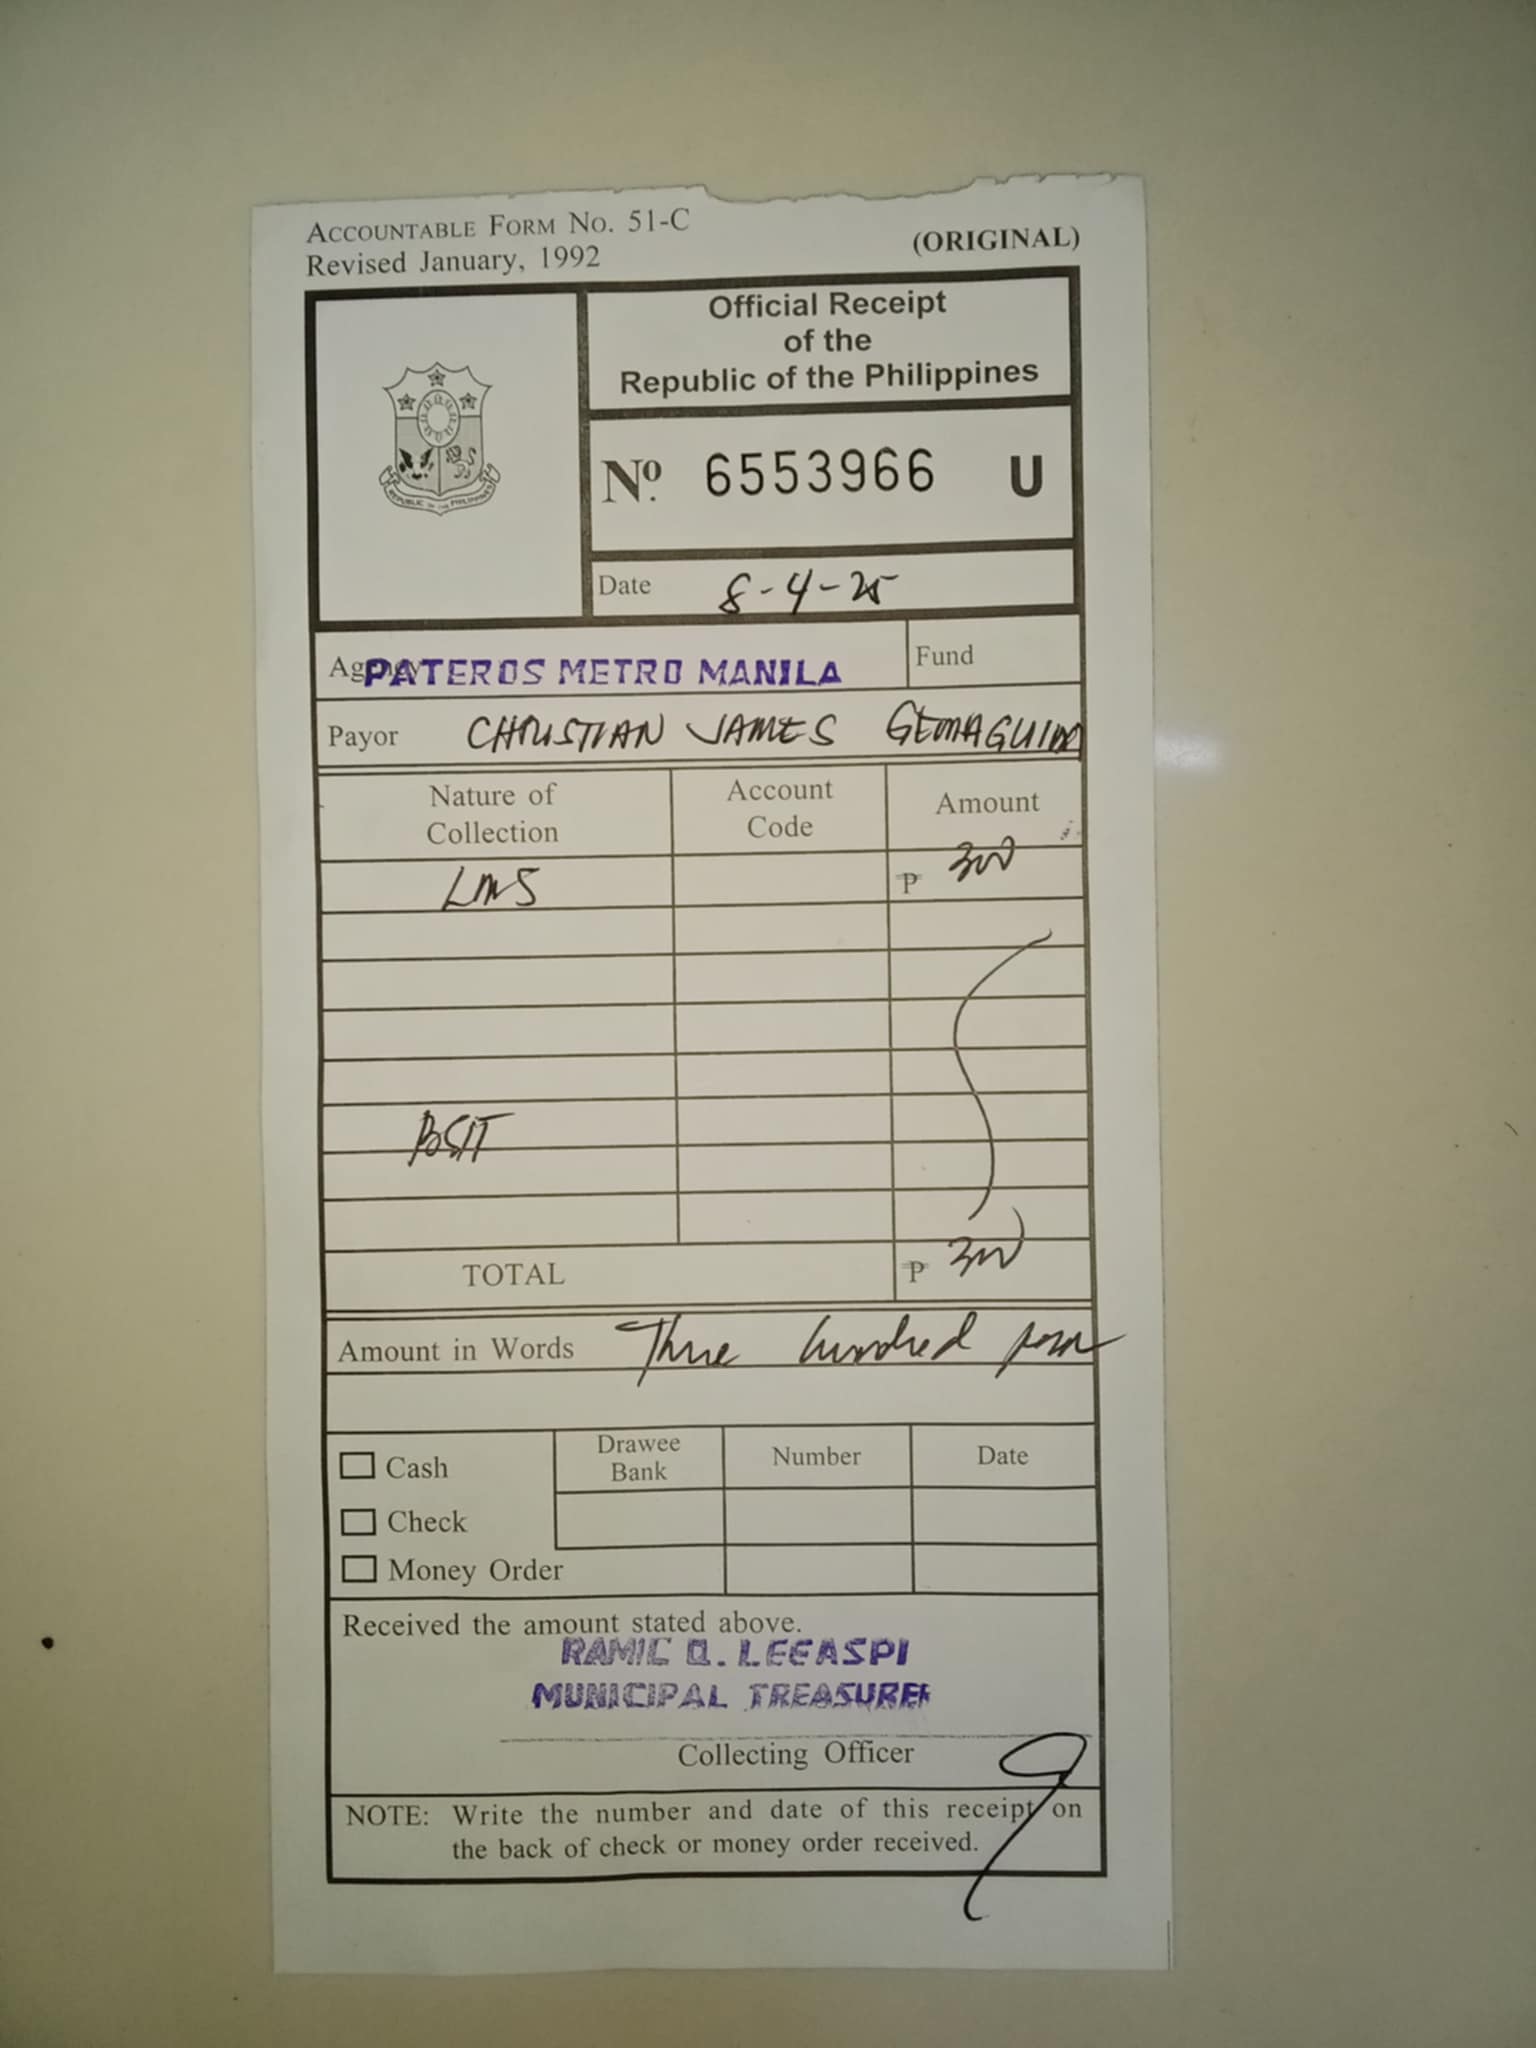 ACCOUNTABLE FORM NO. 51-C
Revised January, 1992
(ORIGINAL)
Official Receipt
of the
Republic of the Philippines
REPUBLIC OF THE PHILIPPINES
Nº. 6553966 U
Date 8-4-25
Agency PATEROS METRO MANILA
Fund
Payor CHRISTIAN JAMES
Nature of Collection
Account Code
Amount
LMS ₱ 300
BSIT
TOTAL ₱ 300
Amount in Words Three hundred
Cash
Check
Money Order
Drawee Bank
Number
Date
Received the amount stated above.
RAMIL Q. LEGASPI
MUNICIPAL TREASURER
Collecting Officer
NOTE: Write the number and date of this receipt on
the back of check or money order received.